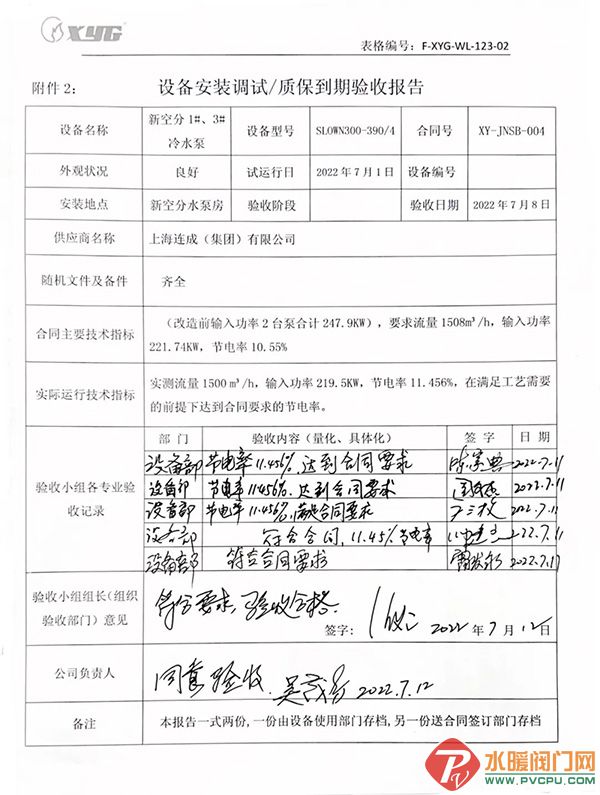 XYG
表格编号：F-XYG-WL-123-02
附件 2：
设备安装调试/质保到期验收报告
设备名称
新空分 1#、3#
冷水泵
设备型号
SLOWN300-390/4
合同号
XY-JNSB-004
外观状况
良好
试运行日
2022 年 7 月 1 日
设备编号
安装地点
新空分水泵房
验收阶段
验收日期
2022 年 7 月 8 日
供应商名称
上海连成（集团）有限公司
随机文件及备件
齐全
合同主要技术指标
（改造前输入功率 2 台泵合计 247.9KW），要求流量 1508m³/h，输入功率
221.74KW，节电率 10.55%
实际运行技术指标
实测流量 1500 m³/h，输入功率 219.5KW，节电率 11.456%，在满足工艺需要
的前提下达到合同要求的节电率。
验收小组各专业验
收记录
部 门
验收内容（量化、具体化）
签 字
日 期
设备部
节电率11.456%，达到合同要求
2022.7.11
设备部
节电率11.456%，达到合同要求
2022.7.11
设备部
节电率11.456%，满足合同要求
2022.7.11
设备部
符合合同，11.45%节电率
2022.7.11
设备部
符合合同要求
2022.7.11
验收小组组长（组织
验收部门）意见
符合要求，验收合格．
签字：
2022 年 7 月 12 日
公司负责人
同意验收．
2022.7.12
备注
本报告一式两份，一份由设备使用部门存档，另一份送合同签订部门存档
水暖阀门网
WWW.PVCPU.COM